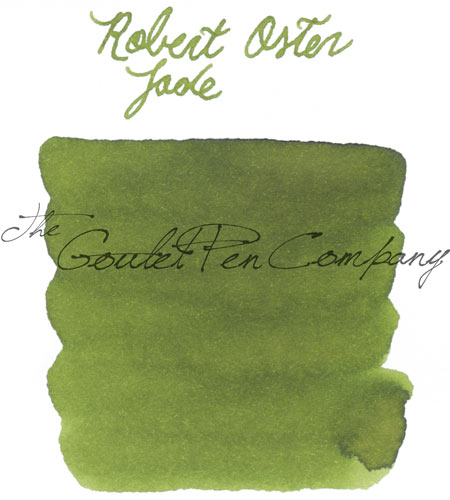 Robert Oster
Jade
The Goulet Pen Company